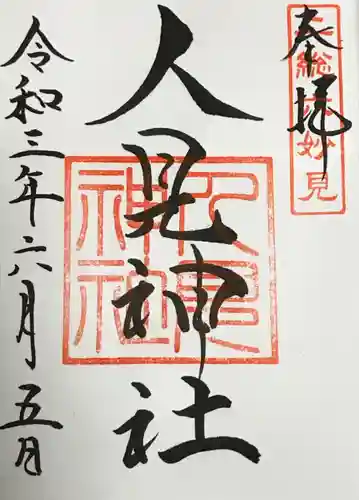 奉拝
上総大妙見
人見神社
人見神社
令和三年六月五月